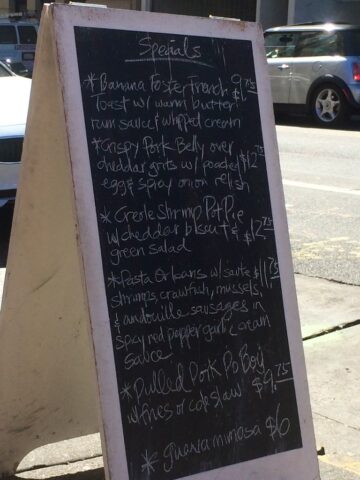 Specials
* Banana Foster French $9.75
Toast w/ warm butter
rum sauce & whipped cream
* Crispy Pork Belly over
cheddar grits w/ poached $12.75
egg & spicy onion relish
* Creole Shrimp Pot Pie
w/ cheddar biscuit & $12.75
green salad
* Pasta Orleans w/ sauté $11.75
shrimps, crawfish, mussels,
& andouille sausages in
spicy red pepper garlic cream
sauce
* Pulled Pork Po Boy
w/ fries or coleslaw $9.75
* guava mimosa $6